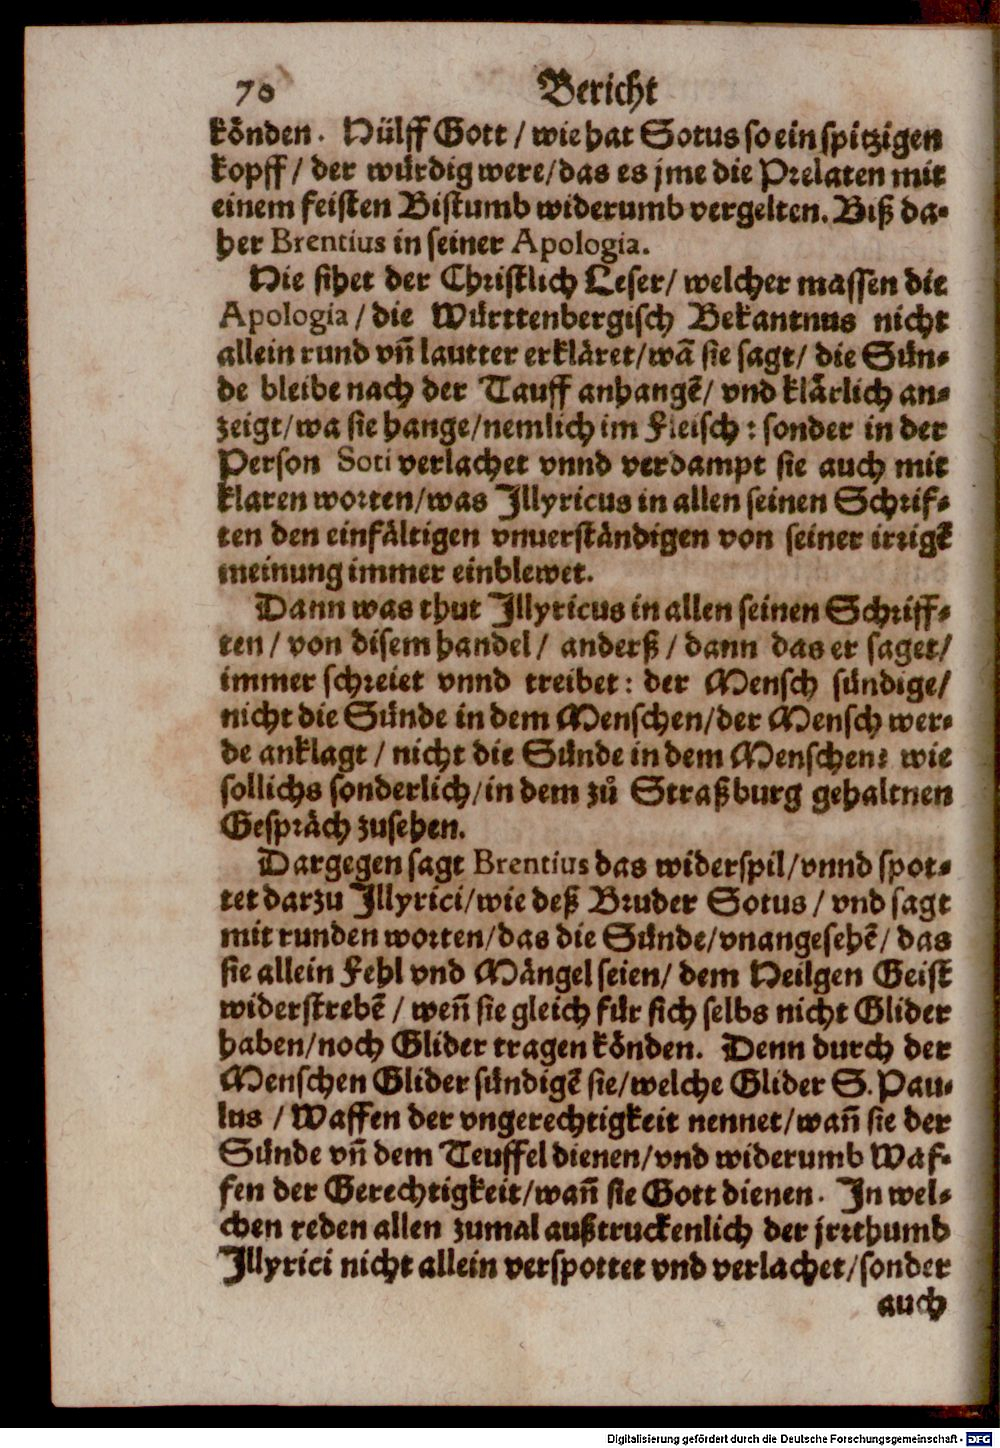 70 Bericht
könden. Hülff Gott / wie hat Sotus so ein spitzigen
kopff / der würdig were / das es jme die Prelaten mit
einem feisten Bistumb widerumb vergelten. Biß da-
her Brentius in seiner Apologia.
Hie sihet der Christlich Leser / welcher massen die
Apologia / die Württenbergisch Bekantnus nicht
allein rund vñ lautter erkläret / wã sie sagt / die Sün-
de bleibe nach der Tauff anhangẽ / vnd klärlich an-
zeigt / wa sie hange / nemlich im Fleisch : sonder in der
Person Soti verlachet vnnd verdampt sie auch mit
klaren worten / was Illyricus in allen seinen Schrif-
ten den einfältigen vnuerständigen von seiner irrigẽ
meinung immer einblewet.
Dann was thut Illyricus in allen seinen Schriff-
ten / von disem handel / anderß / dann das er saget /
immer schreiet vnnd treibet : der Mensch sündige /
nicht die Sünde in dem Menschen / der Mensch wer-
de anklagt / nicht die Sünde in dem Menschen : wie
sollichs sonderlich / in dem zů Straßburg gehaltnen
Gespräch zusehen.
Dargegen sagt Brentius das widerspil / vnnd spot-
tet darzu Illyrici / wie deß Bruder Sotus / vnd sagt
mit runden worten / das die Sünde / vnangesehẽ / das
sie allein Fehl vnd Mängel seien / dem Heilgen Geist
widerstrebẽ / weñ sie gleich für sich selbs nicht Glider
haben / noch Glider tragen könden. Denn durch der
Menschen Glider sündigẽ sie / welche Glider S. Pau-
lus / Waffen der vngerechtigkeit nennet / wañ sie der
Sünde vñ dem Teuffel dienen / vnd widerumb Waf-
fen der Gerechtigkeit / wañ sie Gott dienen. In wel-
chen reden allen zumal außtruckenlich der jrrthumb
Illyrici nicht allein verspottet vnd verlachet / sonder
auch
Digitalisierung gefördert durch die Deutsche Forschungsgemeinschaft - DFG